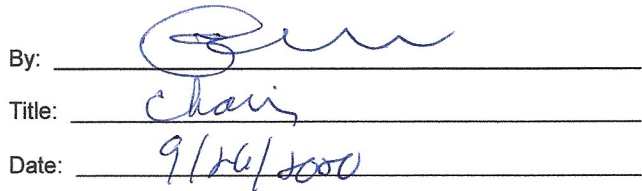 By:
Title: Chair
Date: 9/26/2020